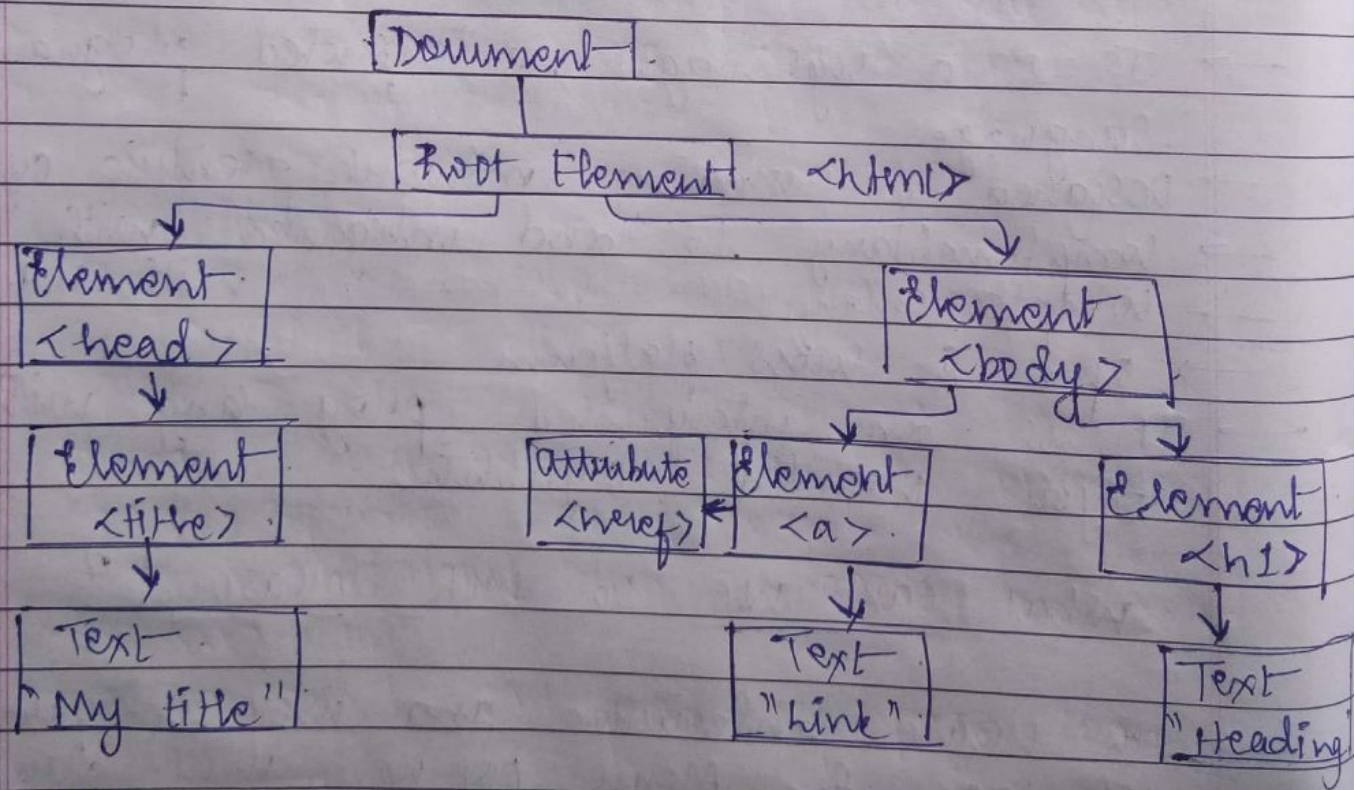 Document
Root Element <html>
Element
<head>
Element
<body>
Element
<title>
attribute
<heref>
Element
<a>
Element
<h1>
Text
"My title"
Text
"Link"
Text
"Heading